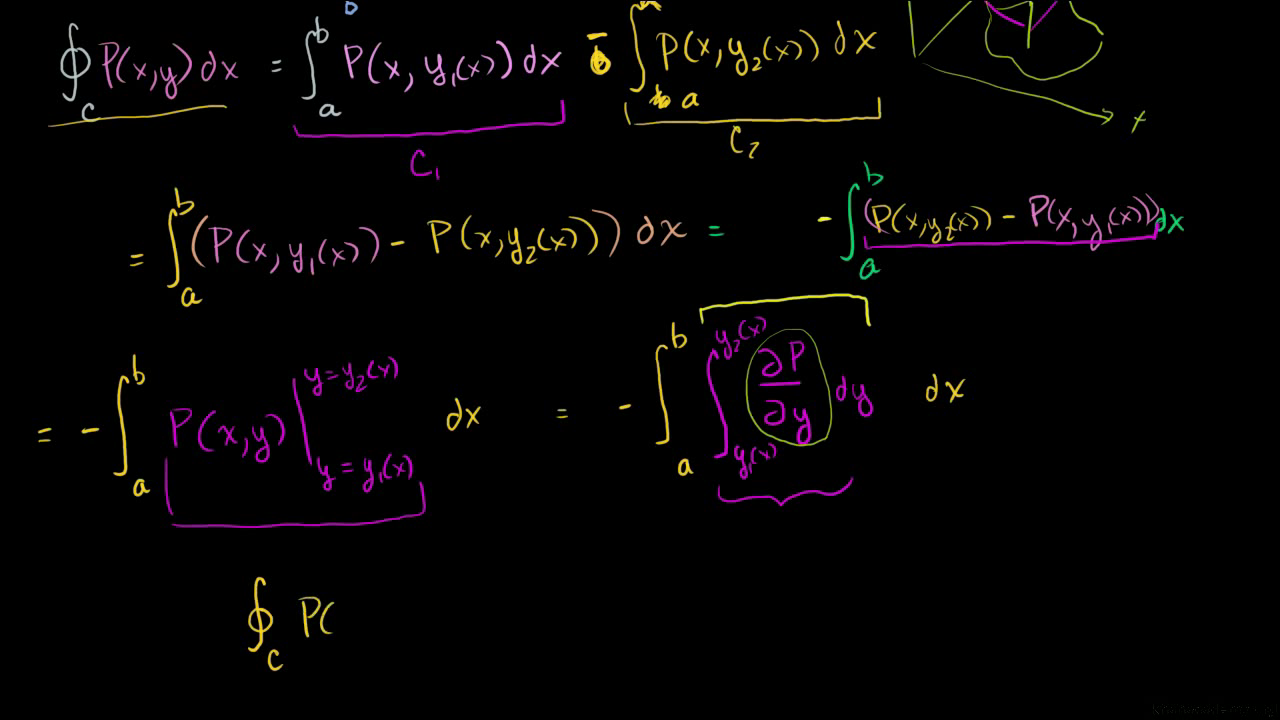 ∮_C P(x,y) dx = ∫_a^b P(x, y₁(x)) dx − ∫_a P(x, y₂(x)) dx
C₁ C₂
x
= ∫_a^b (P(x, y₁(x)) − P(x, y₂(x))) dx = −∫_a^b (P(x, y₂(x)) − P(x, y₁(x))) dx
= −∫_a^b P(x,y) |_{y = y₁(x)}^{y = y₂(x)} dx = −∫_a^b ∫_{y₁(x)}^{y₂(x)} ∂P/∂y dy dx
∮_C P(